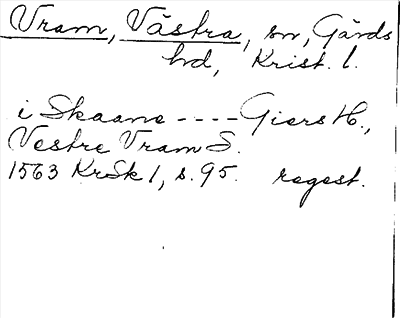 Vram, Västra, sn, Gärds
hd, Krist. l.
i Skaane ---- Giers H.,
Vestre Vram S.
1563 KrSk 1, s. 95. regest.